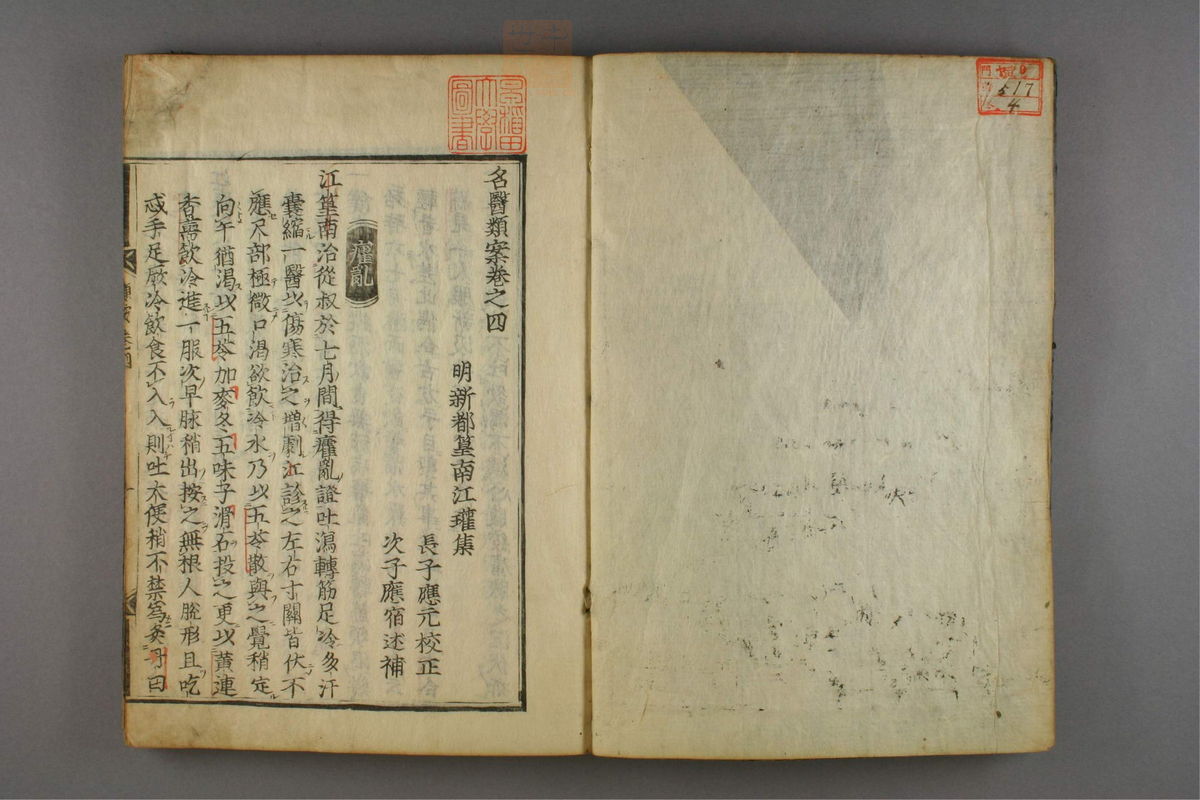 名醫類案卷之四
明新都篁南江瓘集
長子應元校正
次子應宿述補
霍亂
江篁南治從叔於七月間得霍亂證吐瀉轉筋足冷多汗
囊縮一醫以傷寒治之增劇江診之左右寸關皆伏不
應尺部極微口渴欲飲冷水乃以五苓散與之覺稍定
向午猶渴以五苓加麥冬五味子滑石投之更以黃連
香薷飲冷進一服次早脉稍出按之無根人脫形且吃
忒手足厥冷飲食不入入則吐大便稍不禁爲灸丹田
早稲田大學圖書
517
4